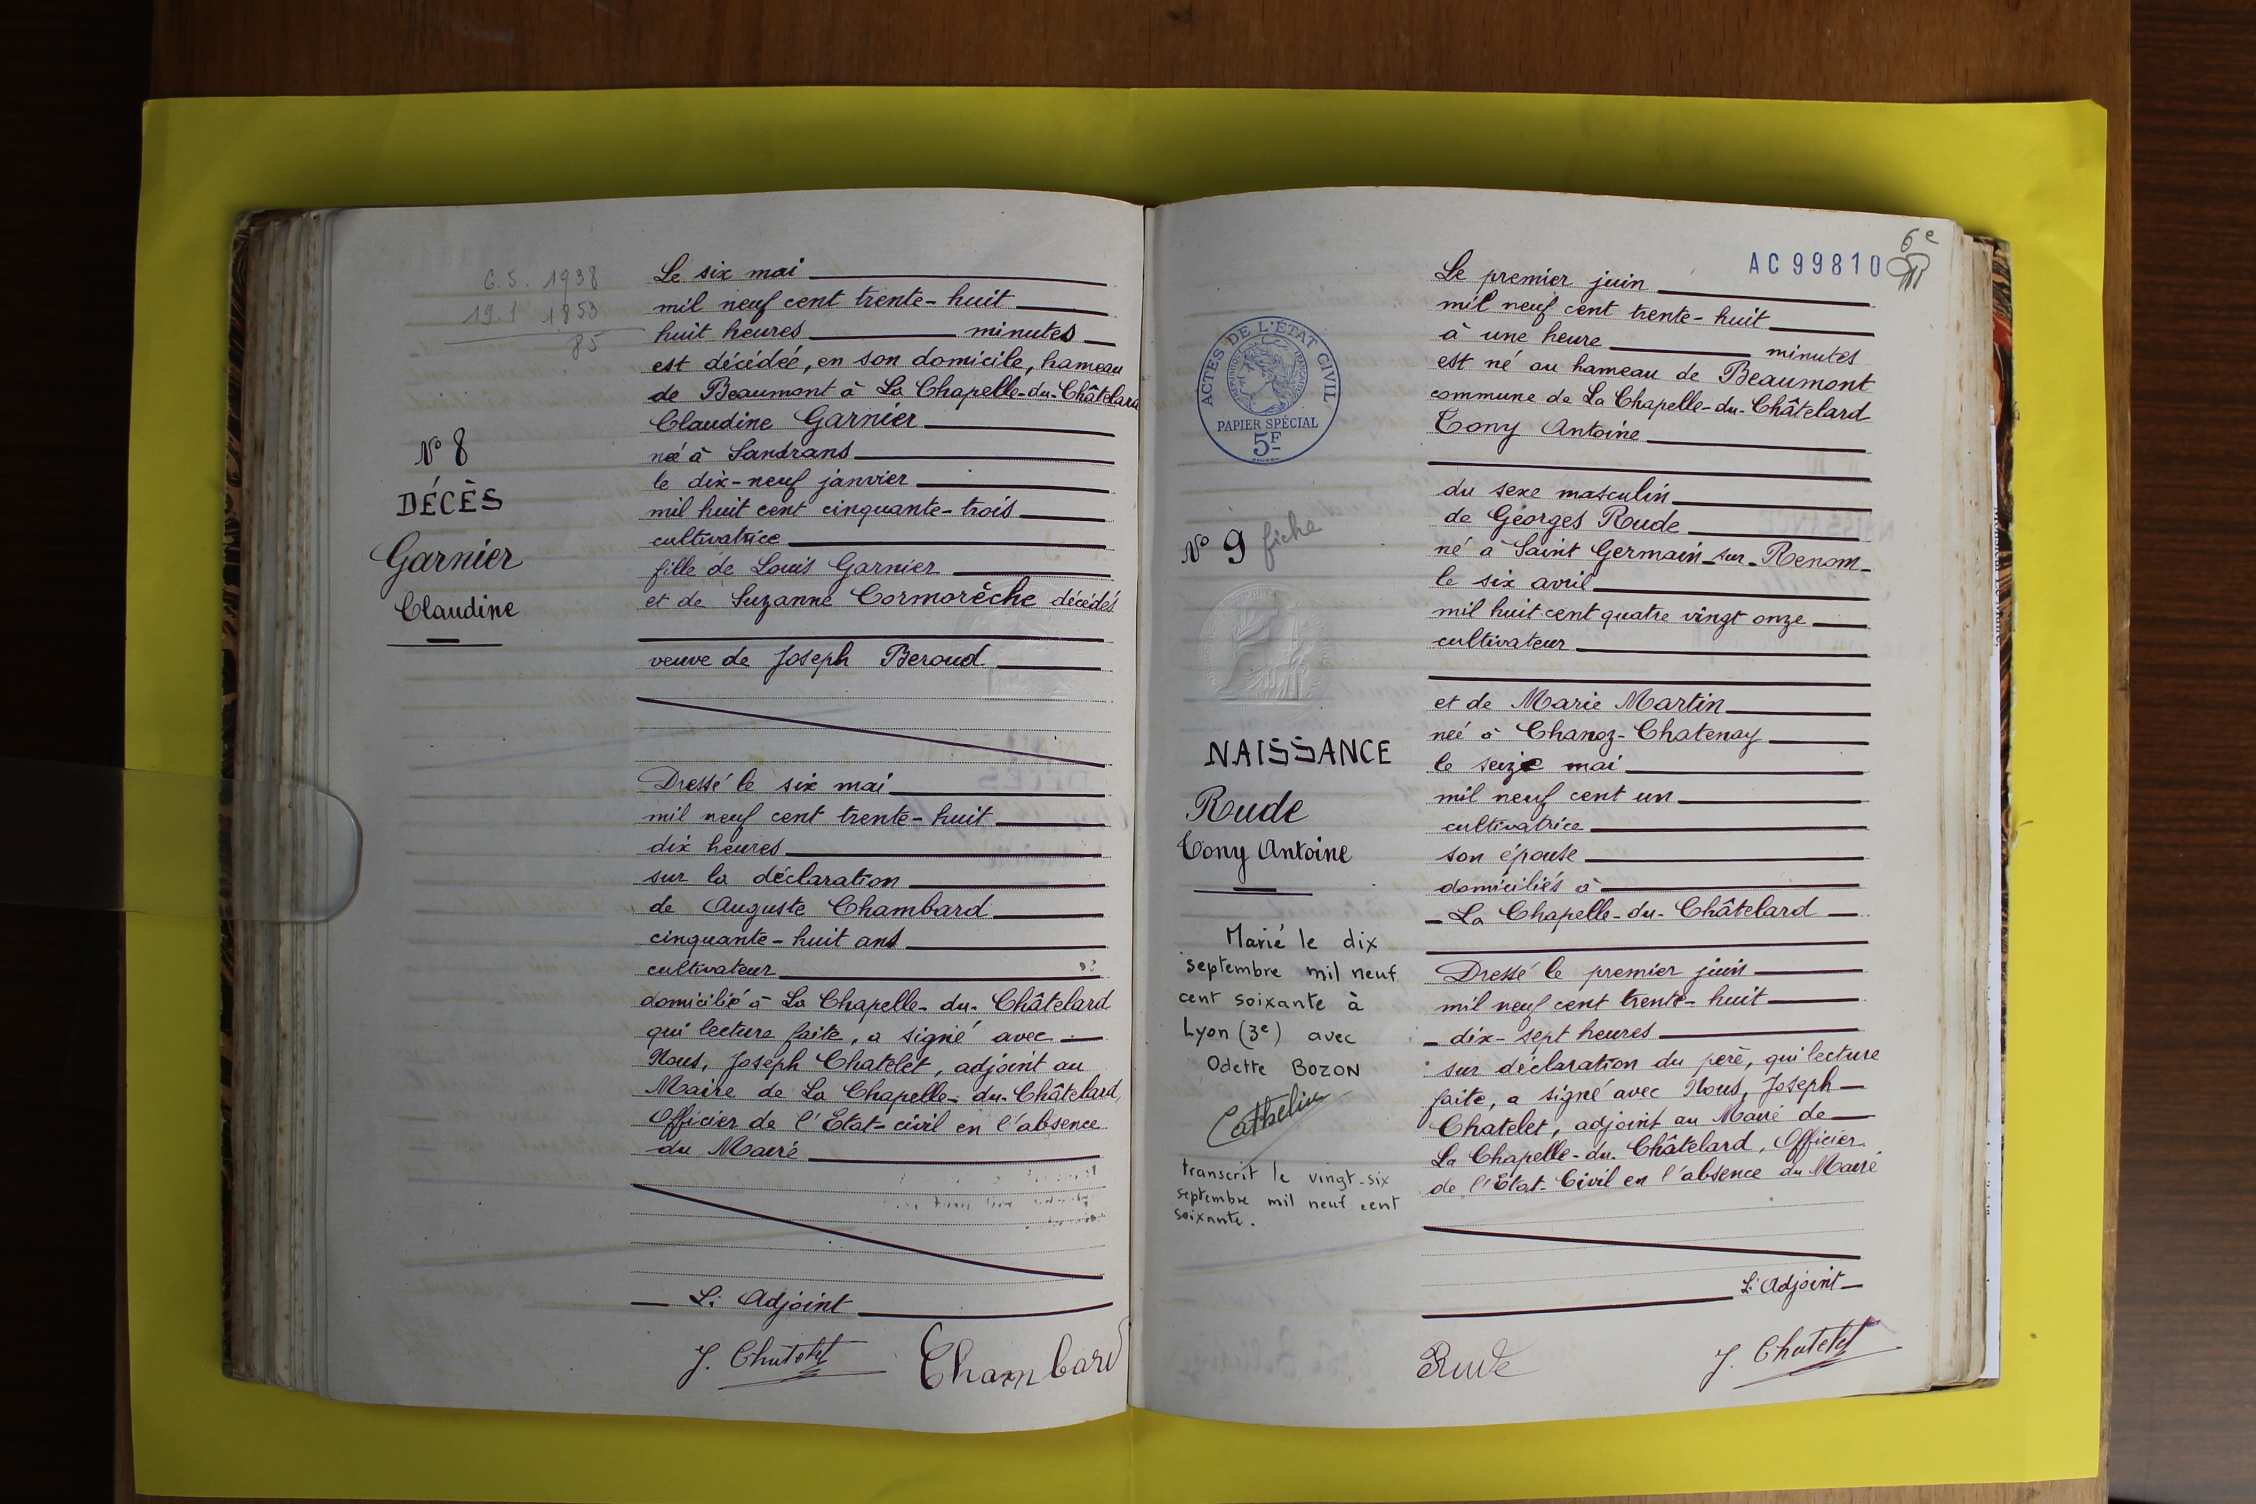 6.5. 1938
19.1 1853
85
N° 8
DÉCÈS
Garnier
Claudine
Le six mai
mil neuf cent trente-huit
huit heures minutes
est décédée, en son domicile, hameau
de Beaumont à La Chapelle-du-Châtelard
Claudine Garnier
née à Sandrans
le dix-neuf janvier
mil huit cent cinquante-trois
cultivatrice
fille de Louis Garnier
et de Suzanne Cormorèche décédés
veuve de Joseph Beroud
Dressé le six mai
mil neuf cent trente-huit
dix heures
sur la déclaration
de Auguste Chambard
cinquante-huit ans
cultivateur
domicilié à La Chapelle-du-Châtelard
qui lecture faite, a signé avec
Nous, Joseph Chatelet, adjoint au
Maire de La Chapelle-du-Châtelard,
Officier de l'Etat-civil en l'absence
du Maire
L'Adjoint
J. Chatelet Chambard
6e
AC 99810
ACTES DE L'ÉTAT CIVIL
PAPIER SPÉCIAL
5F
N° 9 fiche
NAISSANCE
Rude
Tony Antoine
Marié le dix
septembre mil neuf
cent soixante à
Lyon (3e) avec
Odette BOZON
Cathelin
transcrit le vingt-six
septembre mil neuf cent
soixante.
Le premier juin
mil neuf cent trente-huit
à une heure minutes
est né au hameau de Beaumont
commune de La Chapelle-du-Châtelard
Tony Antoine
du sexe masculin
de Georges Rude
né à Saint Germain-sur-Renom-
le six avril
mil huit cent quatre vingt onze
cultivateur
et de Marie Martin
née à Chanoz-Chatenay
le seize mai
mil neuf cent un
cultivatrice
son épouse
domiciliés à
La Chapelle-du-Châtelard
Dressé le premier juin
mil neuf cent trente-huit
dix-sept heures
sur déclaration du père, qui lecture
faite, a signé avec Nous, Joseph
Chatelet, adjoint au Maire de
La Chapelle-du-Châtelard, Officier
de l'Etat-Civil en l'absence du Maire
L'Adjoint
Rude J. Chatelet